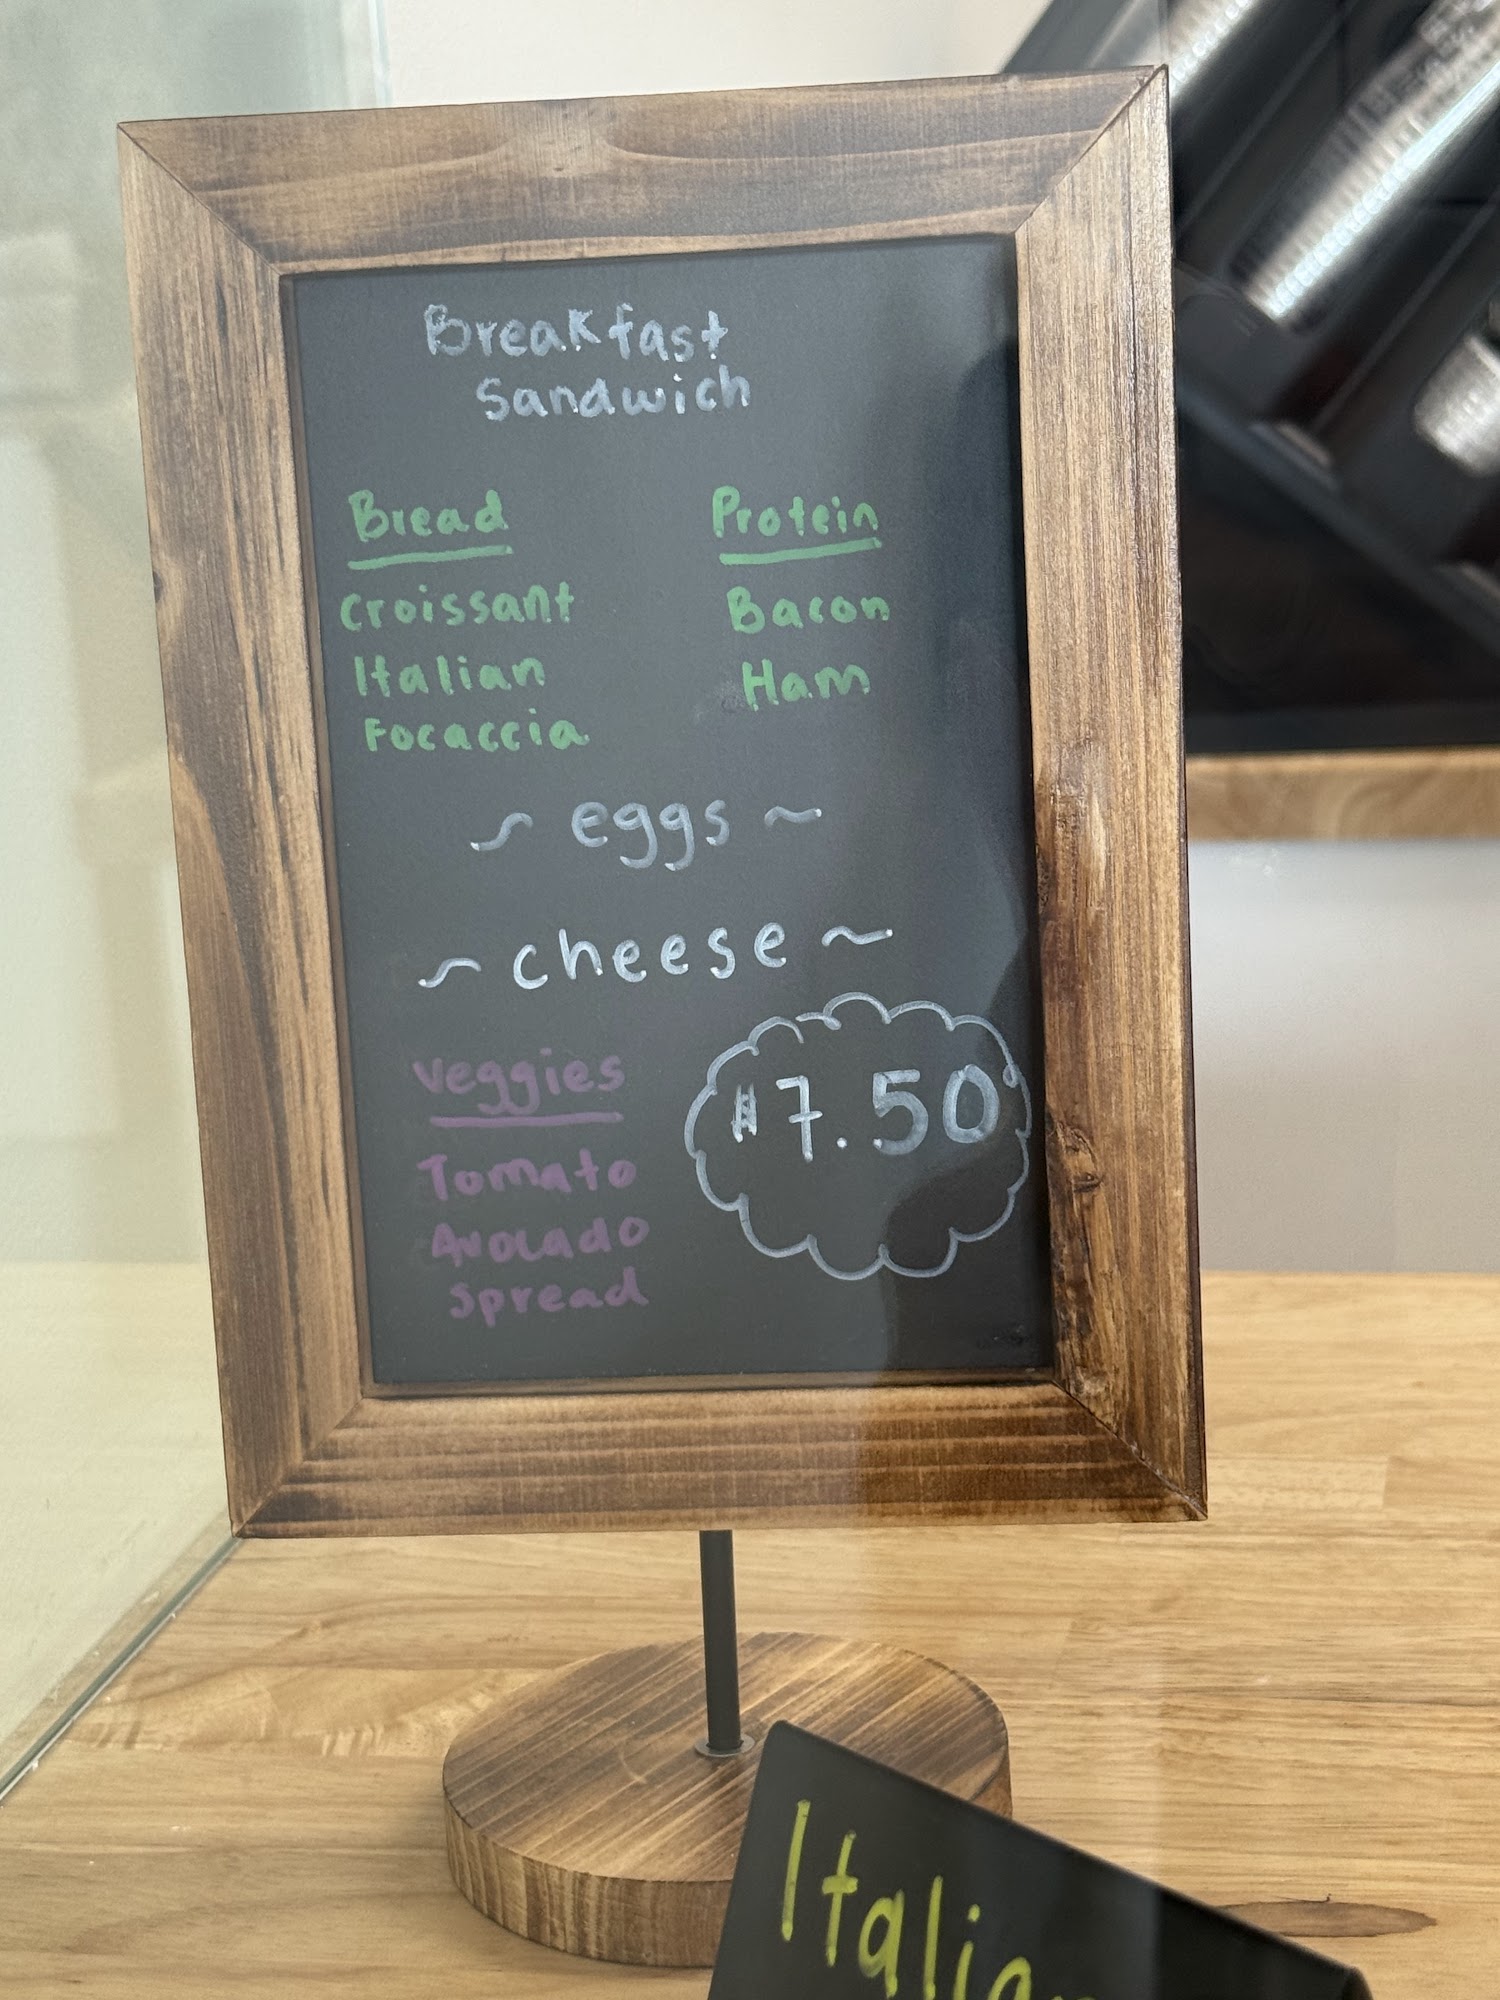 Breakfast
Sandwich
Bread
Croissant
Italian
Focaccia
Protein
Bacon
Ham
~ eggs ~
~ cheese ~
veggies
Tomato
Avocado
spread
$7.50
Italian